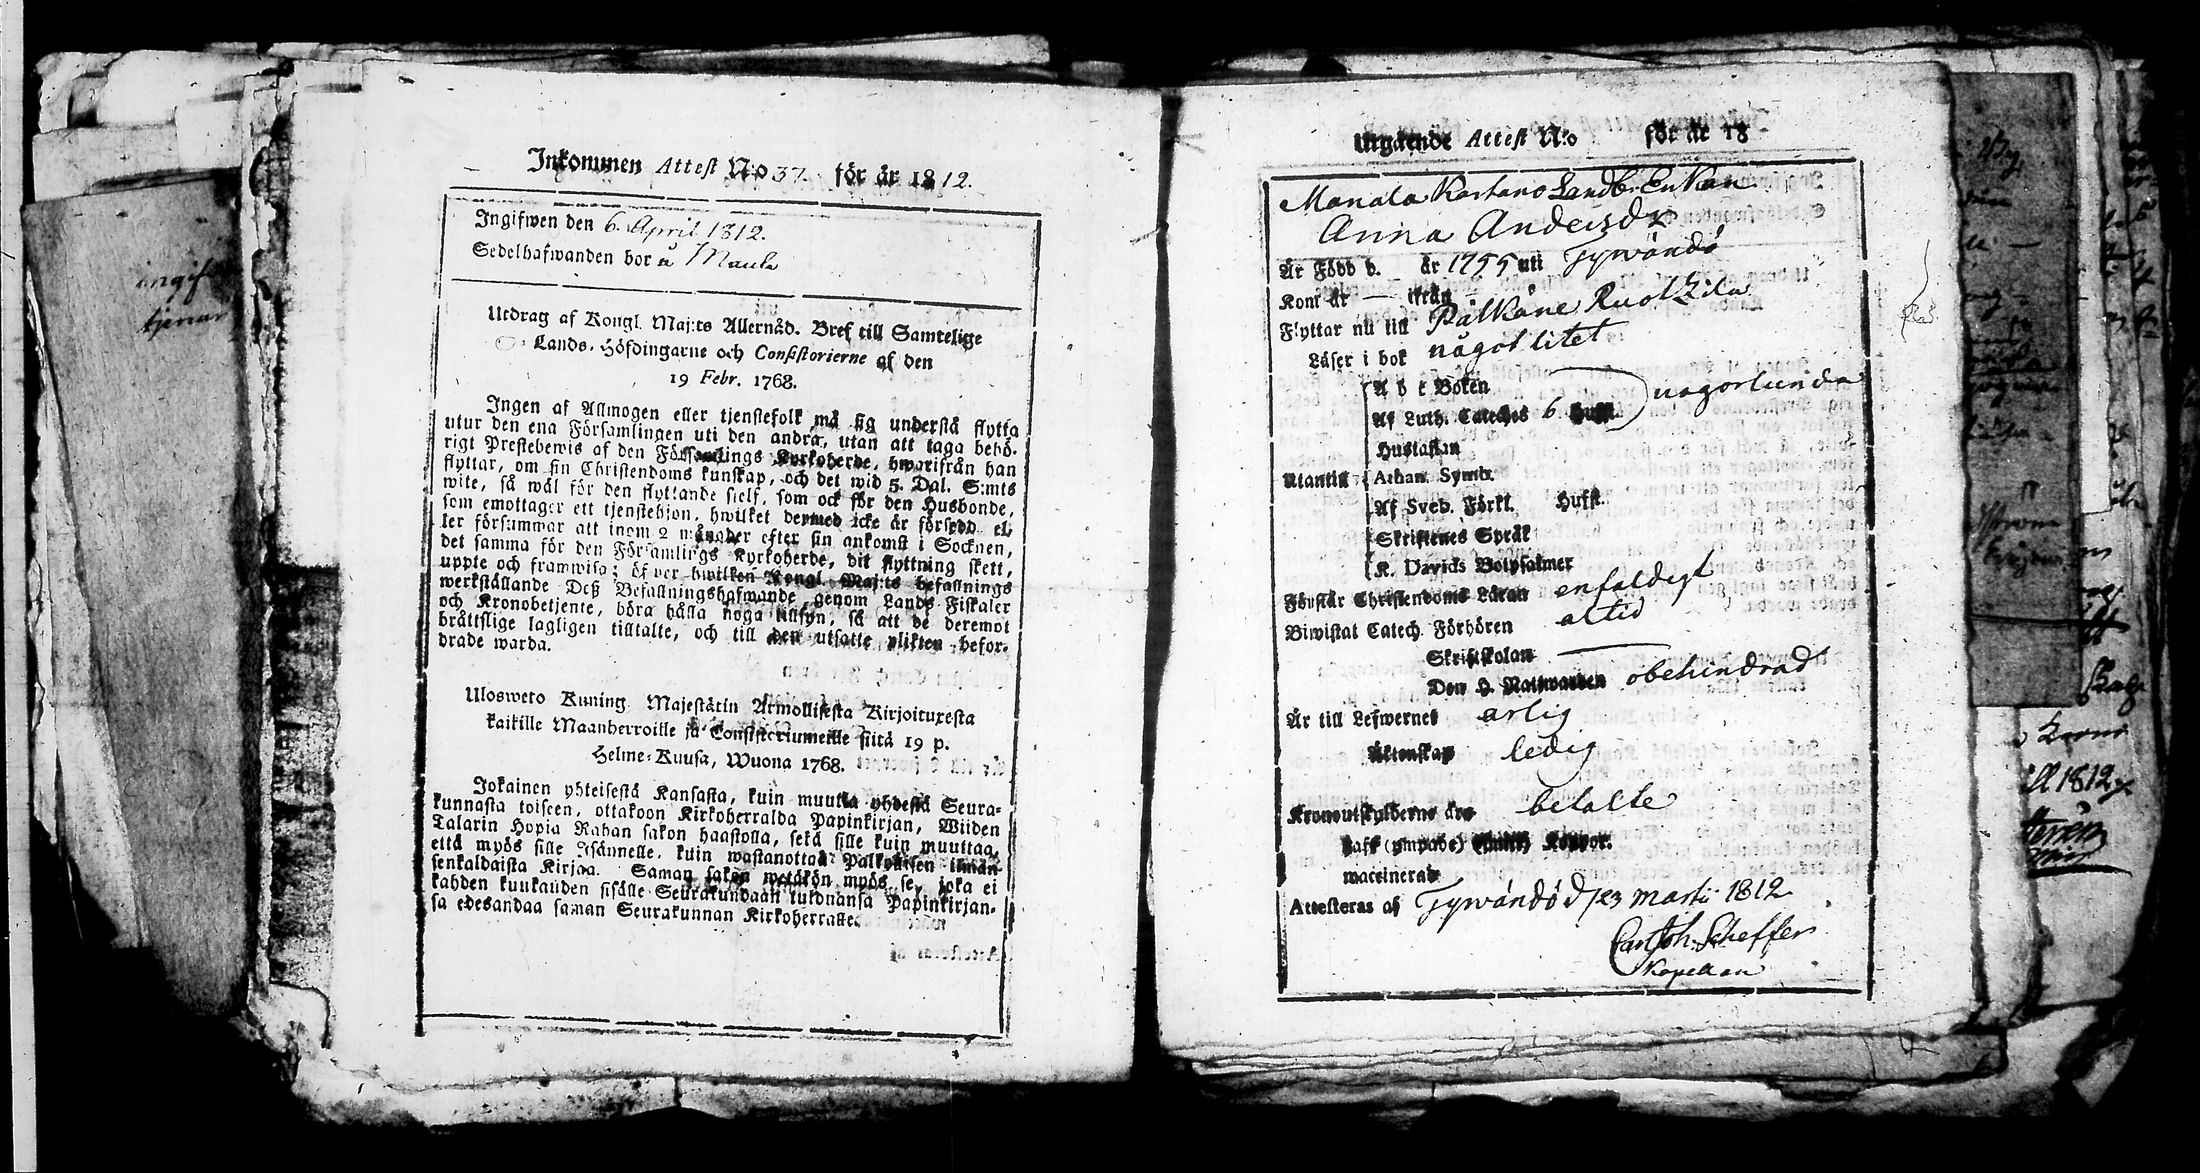 Inkommen Attest N:o 37. för år 1812.
Ingifwen den 6. April 1812.
Sedelhafwanden bor å Maula
Utdrag af Kongl. Maj:ts Allernåd. Bref till Samtelige
Lands-Höfdingarne och Consistorierne af den
19 Febr. 1768.
Ingen af Allmogen eller tjenstefolk må sig understå flytta
utur den ena Församlingen uti den andra, utan att taga behö-
rigt Prestebewis af den Församlings Kyrkoherde, hwarifrån han
flyttar, om sin Christendoms kunskap, och det wid 5. Dal. S:mts
wite, så wäl för den flyttande sielf, som ock för den Husbonde,
som emottager ett tjenstehjon, hwilket dermed icke är försedd el-
ler försummar att inom 2 månader efter sin ankomst i Socknen,
det samma för den Församlings Kyrkoherde, dit flyttning skett,
uppte och framwisa; öfwer hwilken Kongl. Maj:ts befallnings
werkställande Deß Befallningshafwande, genom Lands Fiskaler
och Kronobetjente, böra hålla noga tillsyn, så att de deremot
bråttslige lagligen tilltalte, och till den utsatte plikten befor-
drade warda.
Ulosweto Kuning. Majestätin Armollisesta Kirjoituxesta
kaikille Maanherroille ja Consistoriumeille siitä 19 p.
Helme-Kuusa, Wuona 1768.
Jokainen yhteisestä Kansasta, kuin muutta yhdestä Seura-
kunnasta toiseen, ottakoon Kirkoherralda Papinkirjan, Wiiden
Talarin Hopia Rahan sakon haastolla, sekä sille kuin muuttaa,
että myös sille Isännelle, kuin wastanottaa Palkollisen ilman
senkaldaista Kirjaa. Saman sakon wetäkön myös se, joka ei
kahden kuukauden sisälle Seurakundaan tulduansa Papinkirjan-
sa edesandaa saman Seurakunnan Kirkoherralle.
Utgående Attest N:o för år 18
Manala Kartano Landb. Enkan
Anna Andersdr
Är Född d. år 1755 uti Tyrwändö
Kom år — ifrån —
Flyttar nu till Pälkäne Ruotzila
Läser i bok något litet
A b c Boken
Af Luth. Cateches 6 Hufst. någorlunda
Hustaflan
Utantill Athan. Symb.
Af Sved. Förkl. Hufst.
Skriftenes Språk
K. Davids Botpsalmer
Förstår Christendoms Läran enfaldigt
Biwistat Catech. Förhören altid
Skriftskolan —
Den H. Nattwarden obehindrad
Är till Lefwernet ärlig
Äktenskap ledig
Kronoutskylderne äro betalte
haft (ympade) Koppor.
waccinerad
Attesteras af Tyrwändö d 23 Martii 1812
Carl Joh. Scheffer
Kapellan